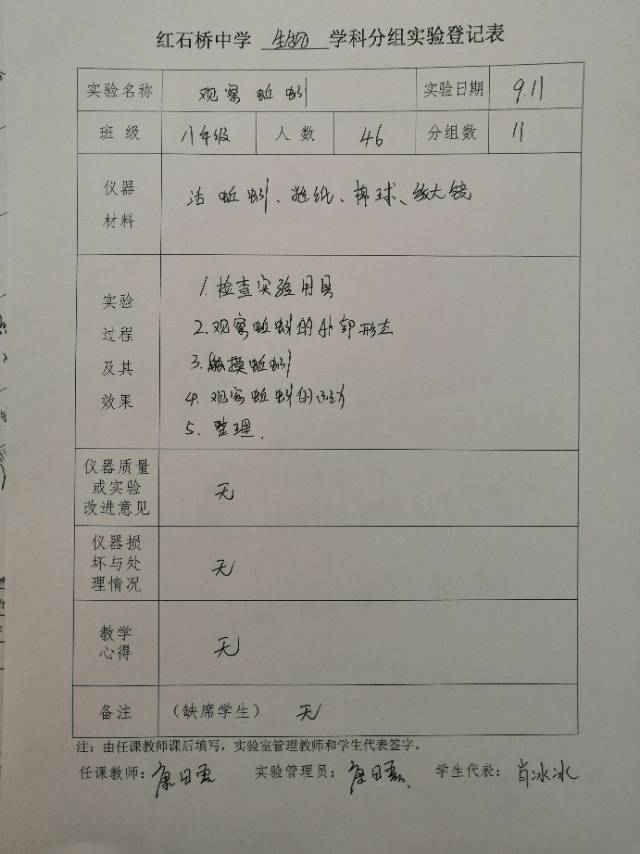 红石桥中学 生物 学科分组实验登记表
实验名称 观察蚯蚓 实验日期 9.11
班级 八年级 人数 46 分组数 11
仪器
材料
活蚯蚓、糙纸、棉球、放大镜
实验
过程
及其
效果
1.检查实验用具
2.观察蚯蚓的外部形态
3.触摸蚯蚓
4.观察蚯蚓的运动
5.整理.
仪器质量
或实验
改进意见
无
仪器损
坏与处
理情况
无
教学
心得
无
备注 (缺席学生) 无
注：由任课教师课后填写，实验室管理教师和学生代表签字。
任课教师： 实验管理员： 学生代表：肖冰冰